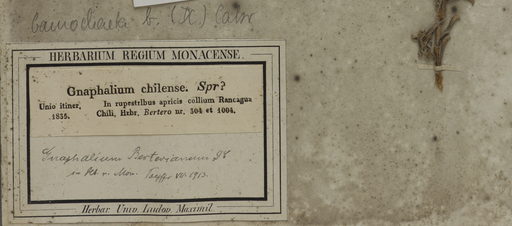 HERBARIUM REGIUM MONACENSE.
Gnaphalium chilense. Spr?
Unio itiner. In rupestribus apricis collium Rancagua
1835. Chili, Hrbr. Bertero nr. 504 et 1004.
Gnaphalium Berterianum
1913.
Herbar. Univ. Ludov. Maximil.